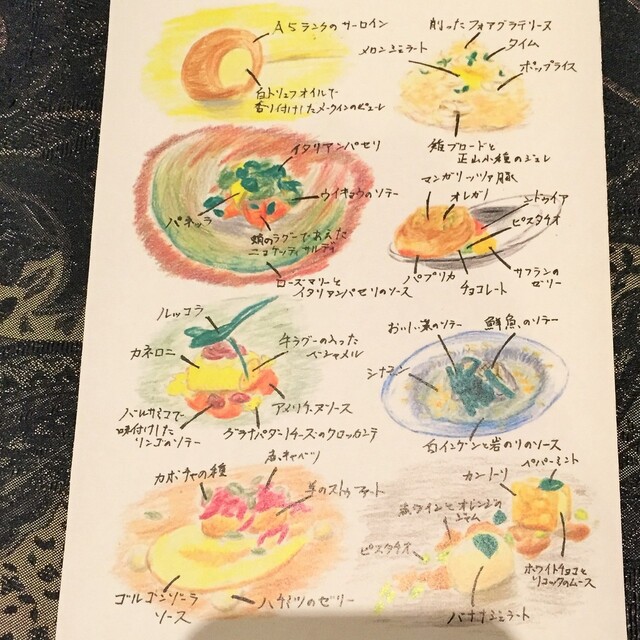 A5ランクのサーロイン
白トリュフオイルで
香り付けしたメークインのピューレ
削ったフォアグラテリーヌ
タイム
メロンジェラート
ポップライス
雉ブロードと
正山小種のジュレ
イタリアンパセリ
ウイキョウのソテー
パネッラ
蛸のラグーであえた
ニョケッティサルディ
ローズマリーと
イタリアンパセリのソース
マンガリッツァ豚
オレガノ
ンドゥイア
ピスタチオ
パプリカ
チョコレート
サフランの
ゼリー
ルッコラ
カネロニ
牛ラグーの入った
ベシャメル
バルサミコで
味付けした
リンゴのソテー
アメリケーヌソース
グラナパダーノチーズのクロッカンテ
おいしい菜のソテー
鮮魚のソテー
シナモン
白インゲンと岩のりのソース
カボチャの種
赤キャベツ
羊のストゥファート
ゴルゴンゾーラ
ソース
ハチミツのゼリー
ペパーミント
カントゥチ
赤ワインとオレンジの
ジャム
ピスタチオ
バナナジェラート
ホワイトチョコと
リコッタのムース